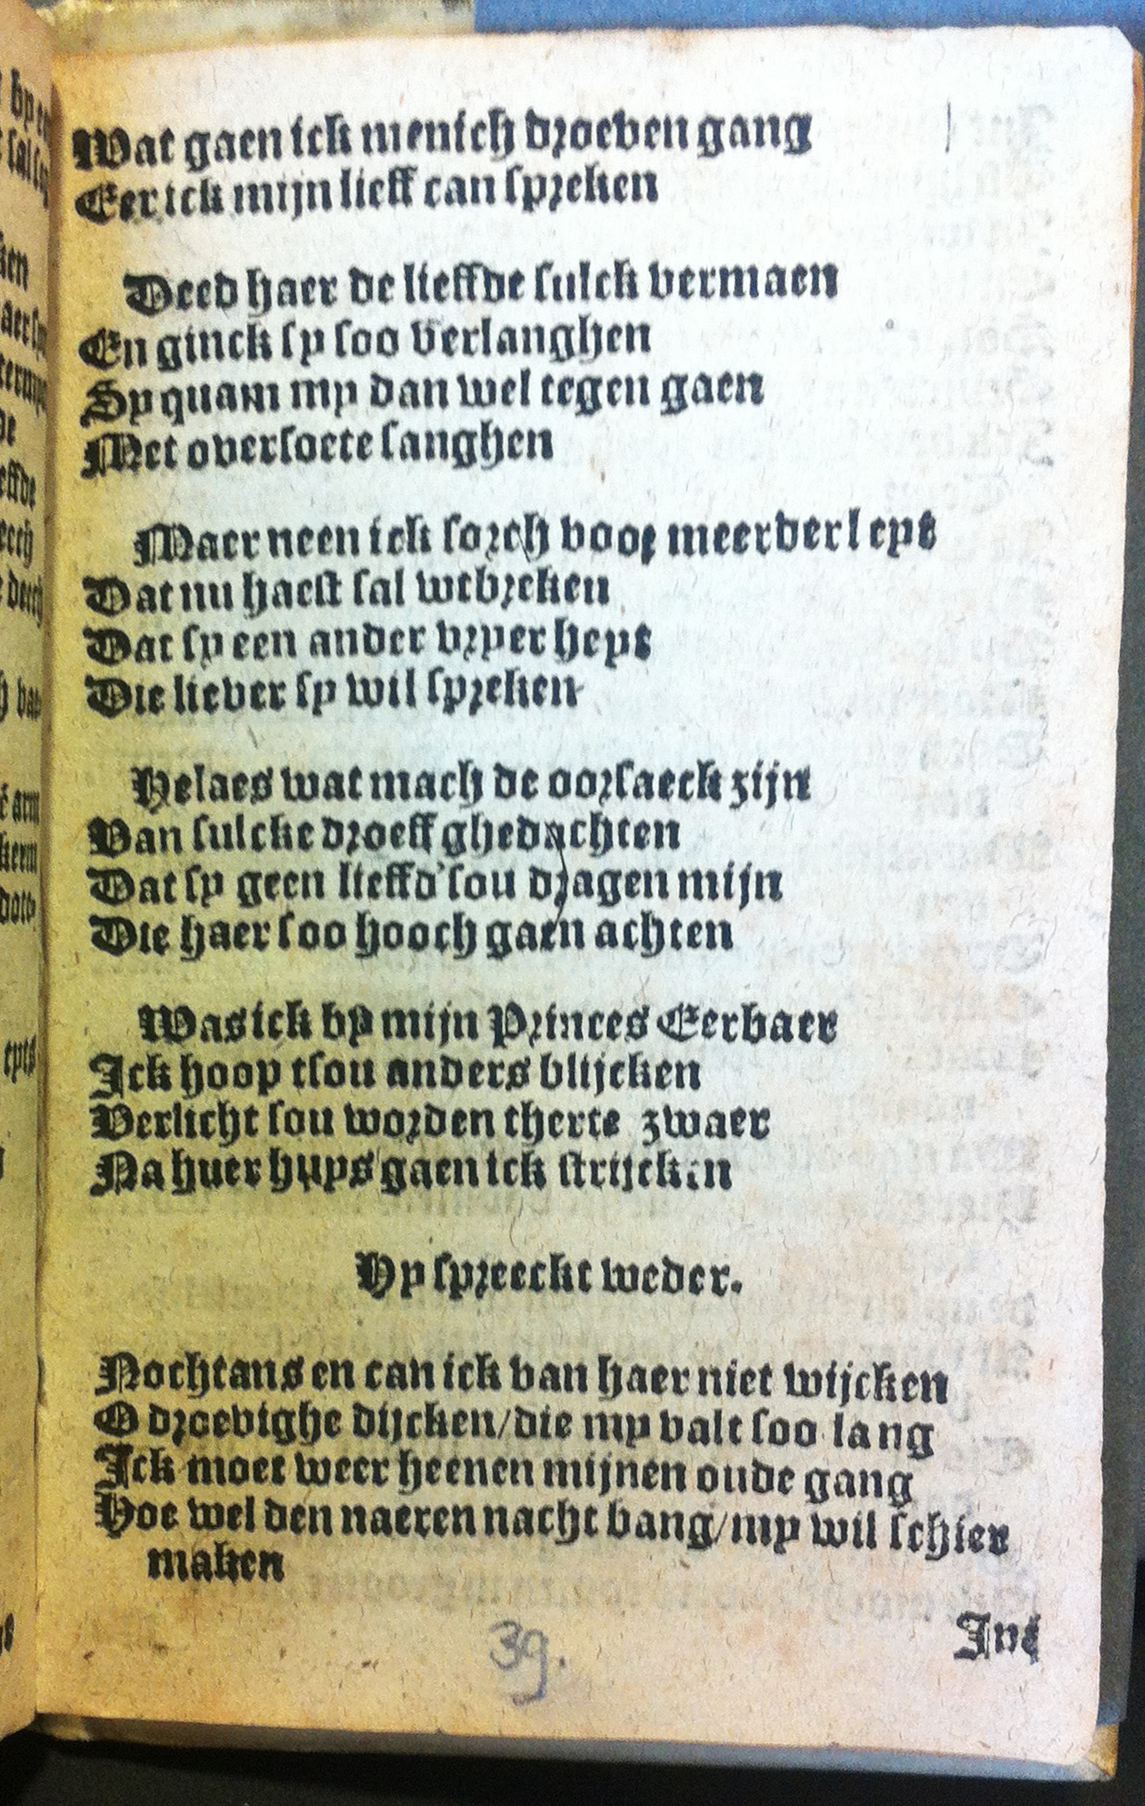 Wat gaen ick menich droeven gang
Eer ick mijn lieff can spreken
Deed haer de lieffde sulck vermaen
En ginck sy soo verlanghen
Sy quam my dan wel tegen gaen
Met oversoete sanghen
Maer neen ick sorch voor meerder leyt
Dat nu haest sal wtbreken
Dat sy een ander vryer heyt
Die liever sy wil spreken
Helaes wat mach de oorsaeck zijn
Van sulcke droeff ghedachten
Dat sy geen lieffd' sou dragen mijn
Die haer soo hooch gaen achten
Was ick by mijn Princes Eerbaer
Ick hoop tsou anders blijcken
Verlicht sou worden therte zwaer
Na huer huys gaen ick strijcken
Hy spreeckt weder.
Nochtans en can ick van haer niet wijcken
O droevighe dijcken/die my valt soo lang
Ick moet weer heenen mijnen oude gang
Hoe wel den naeren nacht bang/my wil schier
maken
39.